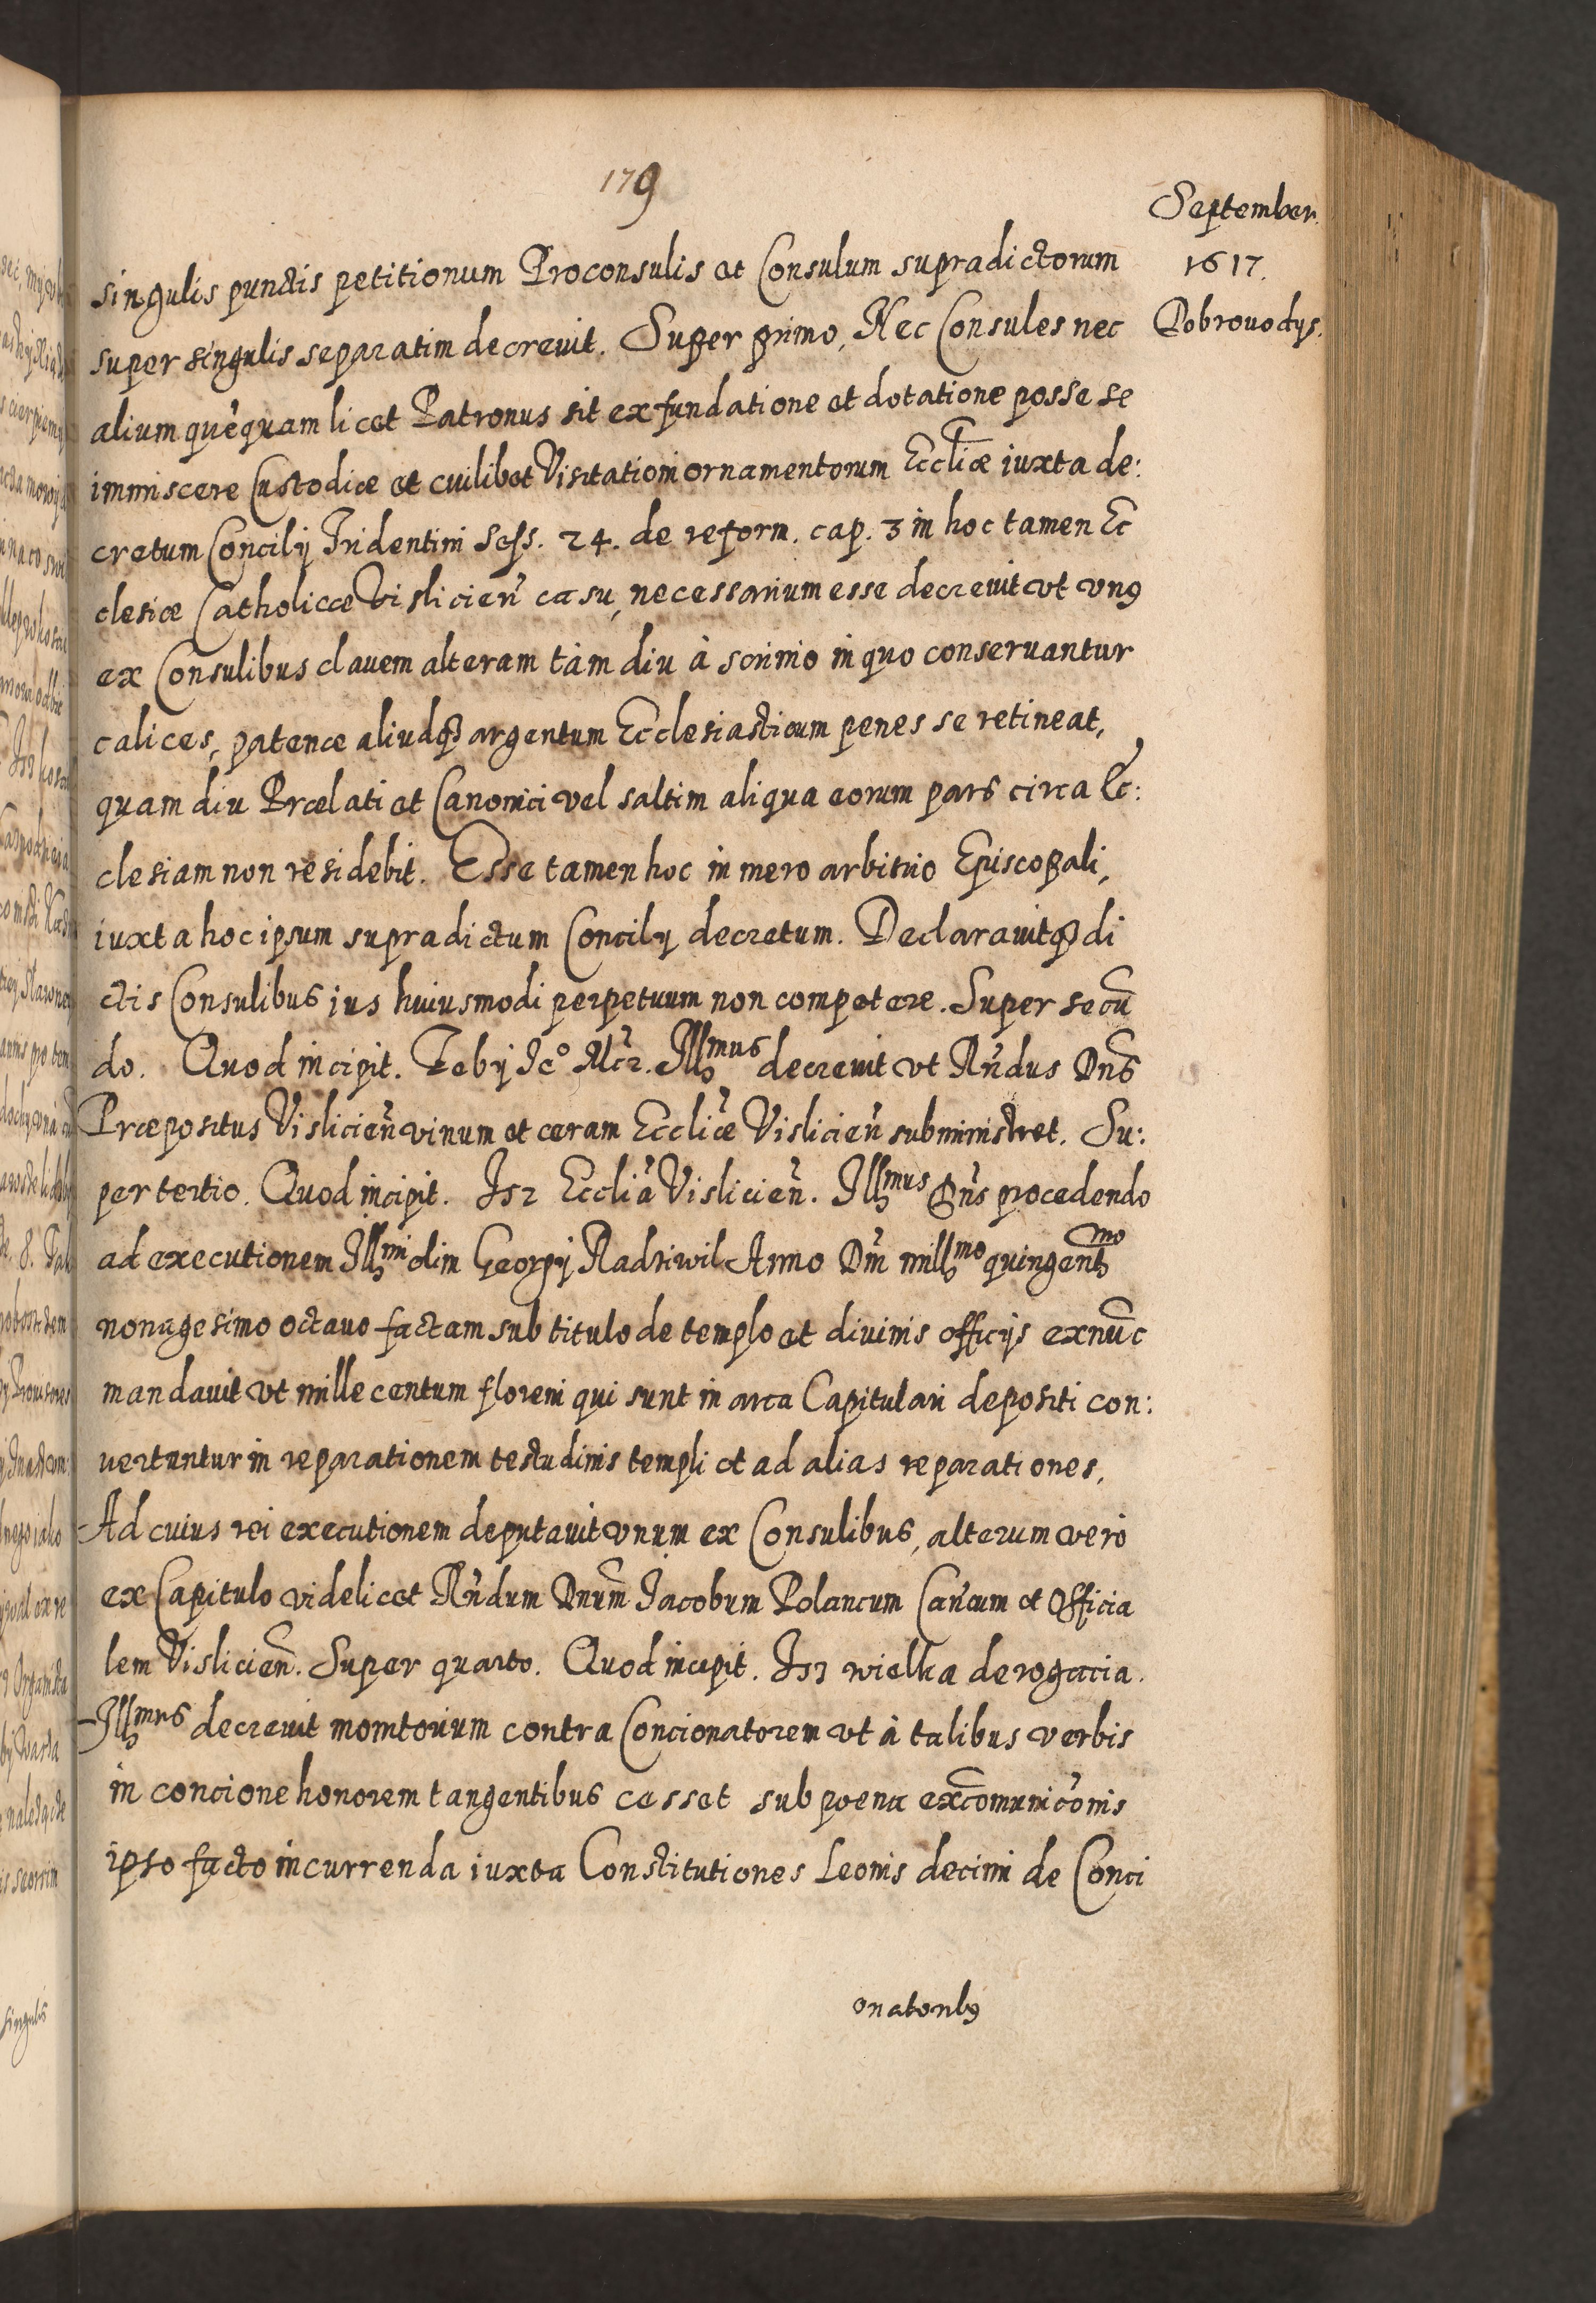 179
September.
1617.
Dobrouodys.
singulis punctis petitionum Proconsulis et Consulum supradictorum
super singulis separatim decrevit. Super primo, Nec Consules nec
alium quẽquam licet Patronus sit ex fundatione et dotatione posse se
immiscere Custodiæ et cuilibet Visitationi ornamentorum Eccliæ iuxta de:
cretum Concilij Tridentini Sess. 24. de reform. cap. 3 in hoc tamen Ec
clesiæ Catholicæ Vislicien̄ casu, necessarium esse decreuit vt vnꝰ
ex Consulibus clauem alteram tàm diu à scrinio in quo conseruantur
calices, patenæ aliudqꝫ argentum Ecclesiasticum penes se retineat,
quam diu Prælati et Canonici vel saltim aliqua eorum pars circa Ec:
clesiam non residebit. Esse tamen hoc in mero arbitrio Episcopali,
iuxta hoc ipsum supradictum Concilij decretum. Declarauitqꝫ di
ctis Consulibus ius huiusmodi perpetuum non competere. Super secũ
do. Quod incipit. Zeby Jeº Mcz. Illmus decreuit vt Rñdus Dñs
Præpositus Vislicieñ vinum et ceram Eccliæ Vislicieñ subministret. Su:
per tertio. Quod incipit. Isz Ecclia Vislicieñ. Illmus Dñs procedendo
ad executionem Illmi olim Georgij Radziwil Anno Dñi millmo quingentmo
nonagesimo octauo factam sub titulo de templo et diuinis officijs exnũc
mandauit vt mille centum floreni qui sunt in arca Capitulari depositi con:
uertantur in reparationem testudinis templi et ad alias reparationes.
Ad cuius rei executionem deputauit vnum ex Consulibus, alterum verò
ex Capitulo videlicet Rñdum Dnum̃ Jacobum Polancum Cañcum et Officia
lem Vislicieñ. Super quarto. Quod incipit. Isz wielka derogacia.
Illmus decreuit monitorium contra Concionatorem vt à talibus verbis
in concione honorem tangentibus cesset sub poena excõmunicõnis
ipso facto incurrenda iuxta Constitutiones Leonis decimi de Conci
onatoribꝰ